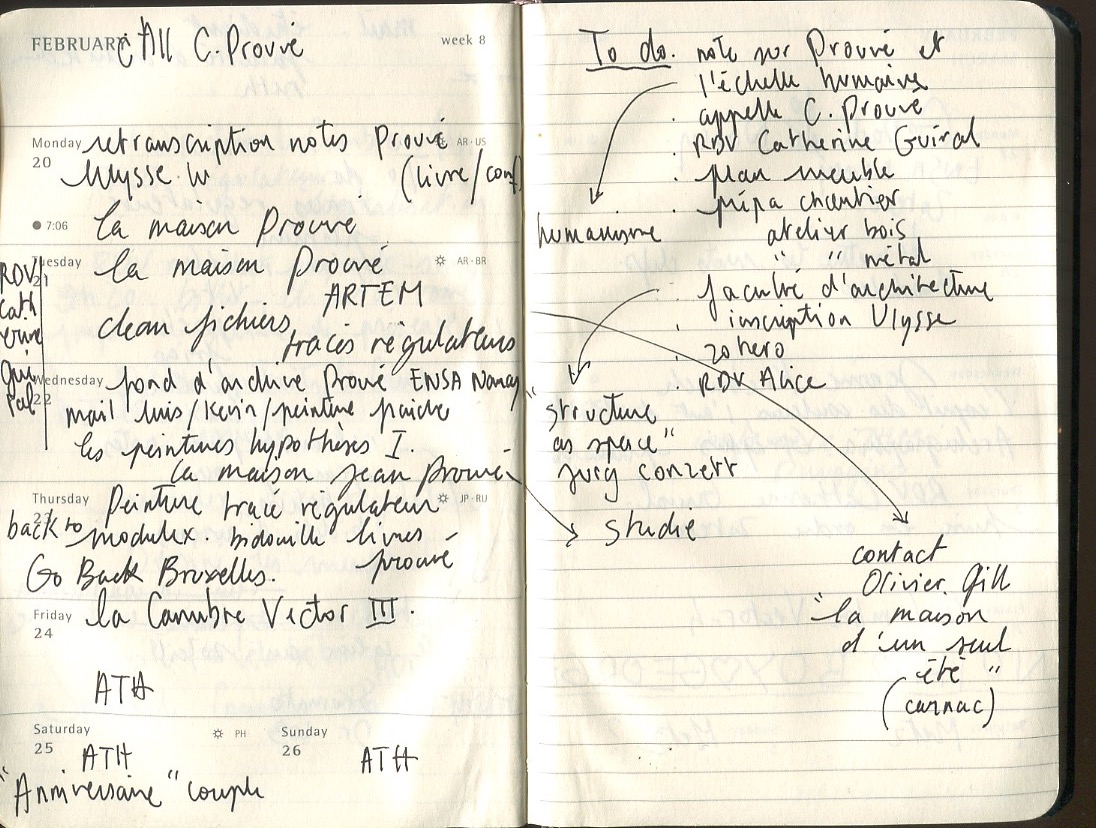 FEBRUARY
week 8
CAll C. Prouvé
Monday
20
retranscription notes Prouvé
AR-US
Ulysse. W
(livre/conf)
7:06
la maison Prouvé
Tuesday
21
RDV
Cath
erine
Gui
ral
la maison Prouvé
AR-BR
ARTEM
clean fichiers,
traces régulateurs
Wednesday
22
fond d'archive Prouvé ENSA Nancy
mail luis/Kevin/peinture
les peintures hypothèses I.
la maison jean prouvé
Thursday
23
Peinture tracé régulateur
JP-RU
back to
modulex. bidouille livres
prouvé
Go Back Bruxelles.
Friday
24
la Cambre Victor III.
ATH
Saturday
25
PH
ATH
"Anniversaire" couple
Sunday
26
ATH
To do. note sur Prouvé et
l'échelle humaine
. appelle C. Prouvé
. RDV Catherine Guiral
. plan meuble
. prépa chantier
humanisme
atelier bois
" " métal
. faculté d'architecture
. inscription Ulysse
. zohero
. RDV Alice
"structure
as space"
jurg conzett
studie
contact
Olivier. Gill
"la maison
d'un seul
été"
(carnac)